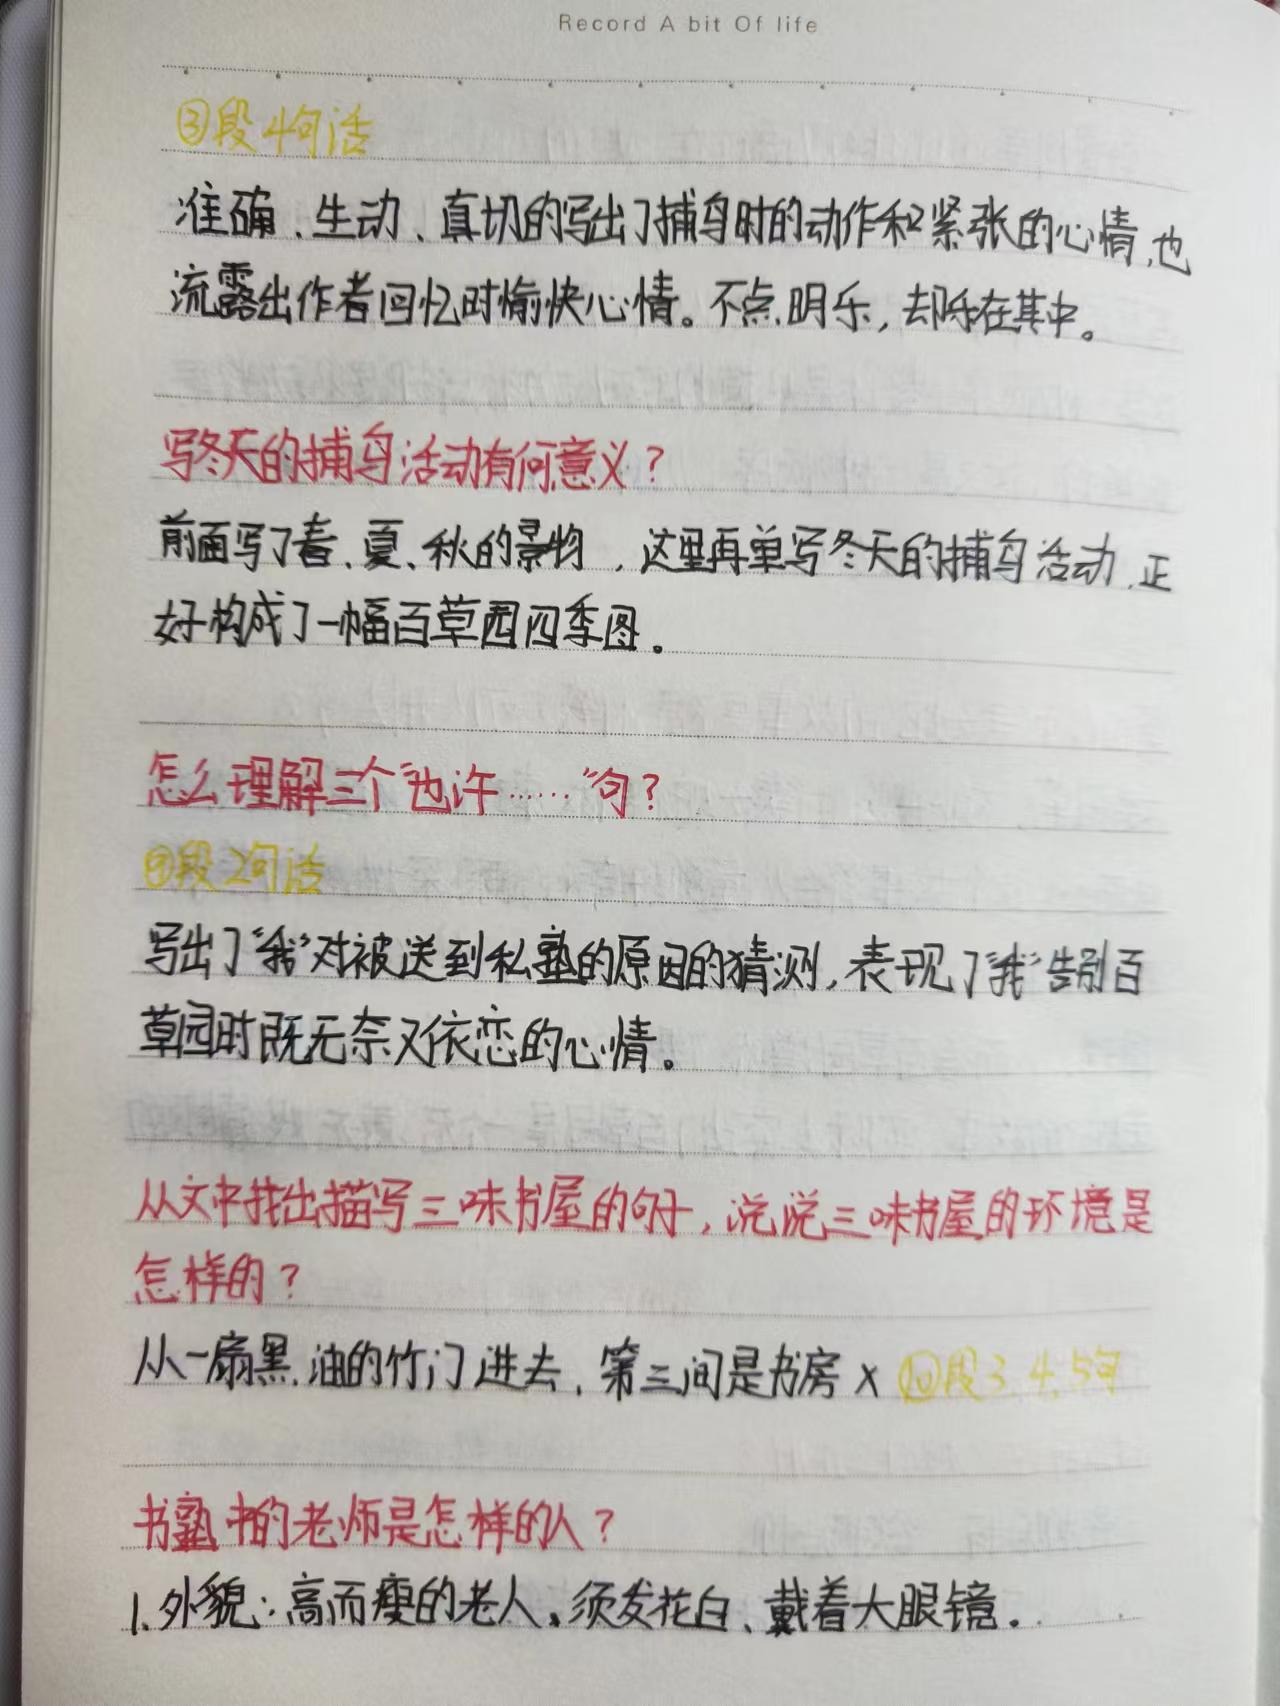 Record A bit Of life
③段4句话
准确、生动、真切的写出了捕鸟时的动作和紧张的心情,也
流露出作者回忆时愉快心情。不点明乐,却乐在其中。
写冬天的捕鸟活动有何意义?
前面写了春、夏、秋的景物,这里再单写冬天的捕鸟活动,正
好构成了一幅百草园四季图。
怎么理解三个“也许……”句?
⑨段2句话
写出了“我”对被送到私塾的原因的猜测,表现了“我”告别百
草园时既无奈又依恋的心情。
从文中找出描写三味书屋的句子,说说三味书屋的环境是
怎样的?
从一扇黑油的竹门进去,第三间是书房 x ⑩段3、4、5句
书塾中的老师是怎样的人?
1.外貌:高而瘦的老人、须发花白、戴着大眼镜。